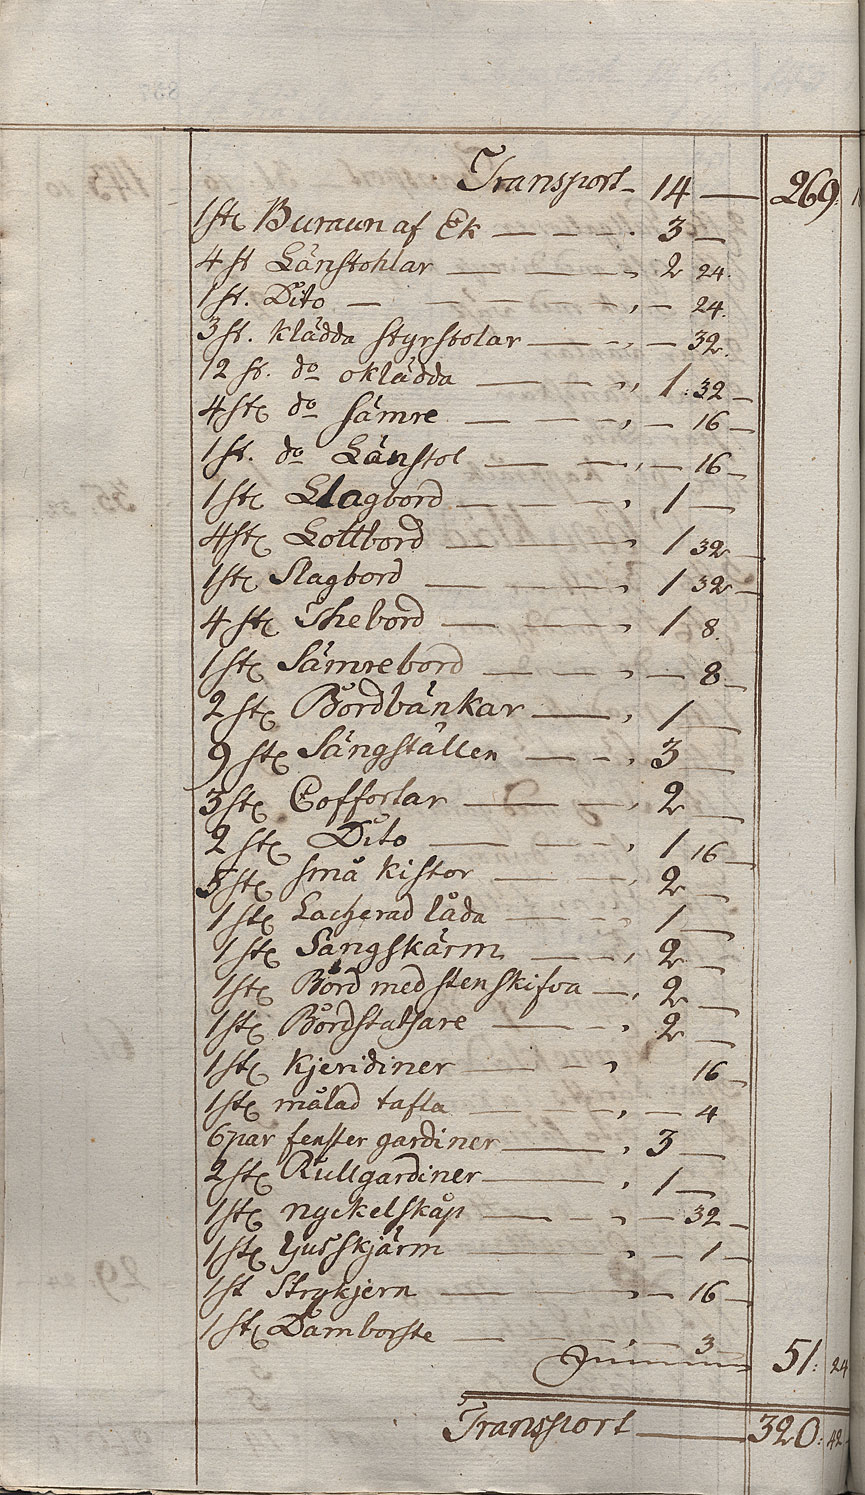 Transport - 14 — 269:
1 stc Buraun af Ek — — — . 3 —
4 st Länstohlar — — — „ 2 24.
1 st. Dito — — — — „ — 24.
3 st. klädda styrstolar — — „ — 32.
12 st. do oklädda — — — „ 1 : 32 —
4 stc do sämre — — — „ — 16 —
1 st. do Länstol — — — „ — 16 —
1 stc Slagbord — — — „ 1 —
4 stc Lottbord — — — „ 1 32 —
1 stc Slagbord — — — „ 1 32 —
4 stc Thebord — — — „ 1 8.
1 stc Sämre bord — — — „ — 8 —
2 stc Bordbänkar — — „ 1 —
9 stc Sängställen — — - . 3 —
3 stc Coffortar — — — „ 2 —
2 stc Dito — — — — „ 1 16 —
5 stc små kistor — — — „ 2 —
1 stc Lacherad låda — — — „ 1 —
1 stc Sängskärm — — - „ 2 —
1 stc Bord med stenskifva — . 2 —
1 stc Bordstatsare — — - „ 2 —
1 stc kjeridiner — — — „ 16 —
1 stc målad tafla — — — „ — 4
6 par fenster gardiner — — „ 3 —
2 stc Rullgardiner — — „ 1 —
1 stc nyckelskåp — — - „ — 32 —
1 stc Ljusskjärm — — - „ — 1 —
1 st Strykjern — — — „ — 16 —
1 stc Damborste — — — „ — 3 —
Summa 51: 24
Transport — 320: 42